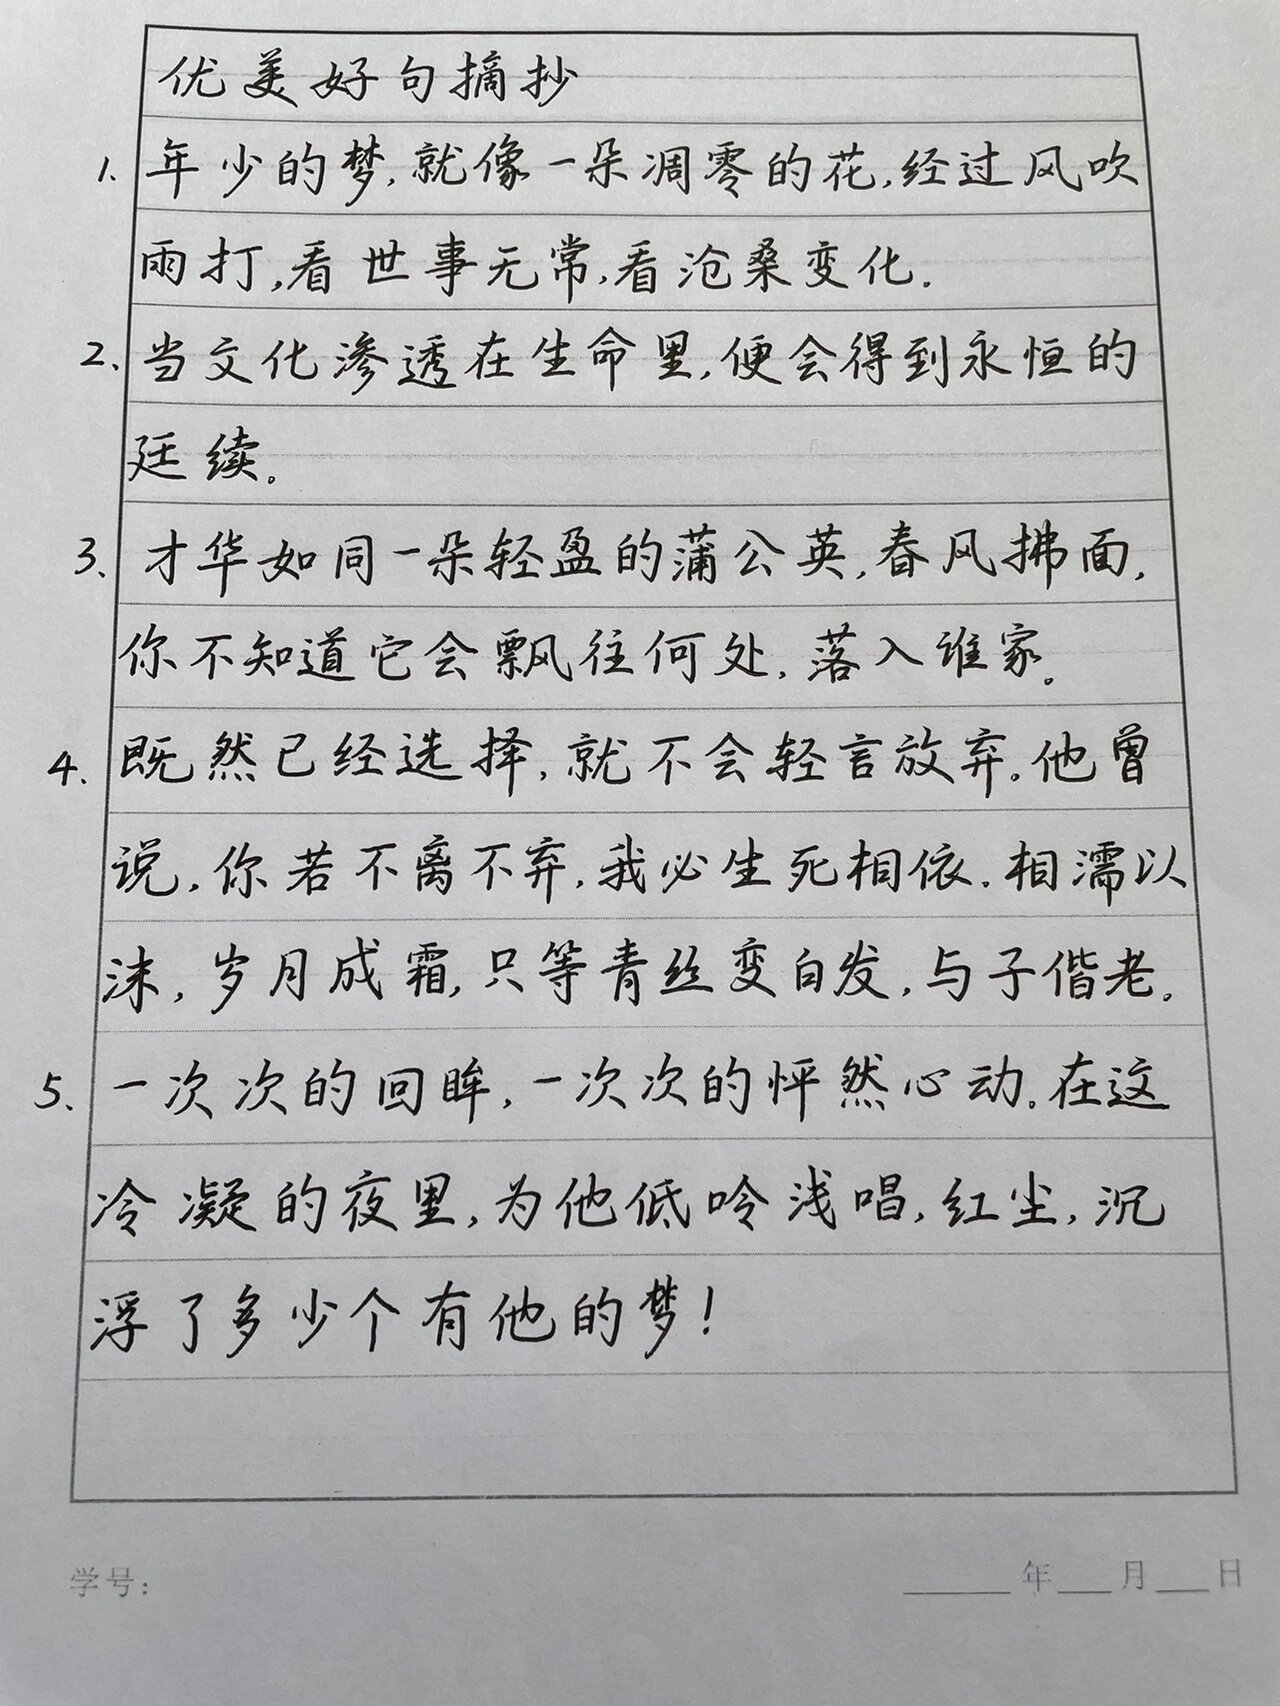 优美好句摘抄
1. 年少的梦,就像一朵凋零的花,经过风吹
雨打,看世事无常,看沧桑变化.
2、当文化渗透在生命里,便会得到永恒的
延续。
3、才华如同一朵轻盈的蒲公英,春风拂面,
你不知道它会飘往何处,落入谁家。
4. 既然已经选择,就不会轻言放弃。他曾
说,你若不离不弃,我必生死相依.相濡以
沫,岁月成霜,只等青丝变白发,与子偕老。
5、一次次的回眸,一次次的怦然心动。在这
冷凝的夜里,为他低吟浅唱,红尘,沉
浮了多少个有他的梦!
学号: ____年__月__日